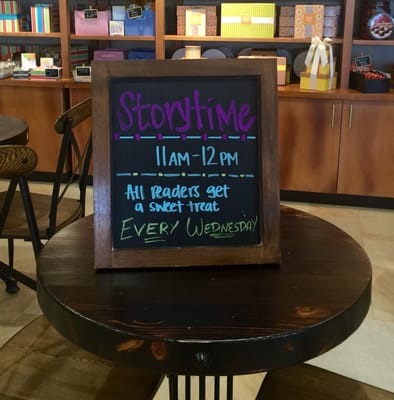 Storytime
11AM-12PM
All readers get
a sweet treat
EVERY WEDNESDAY